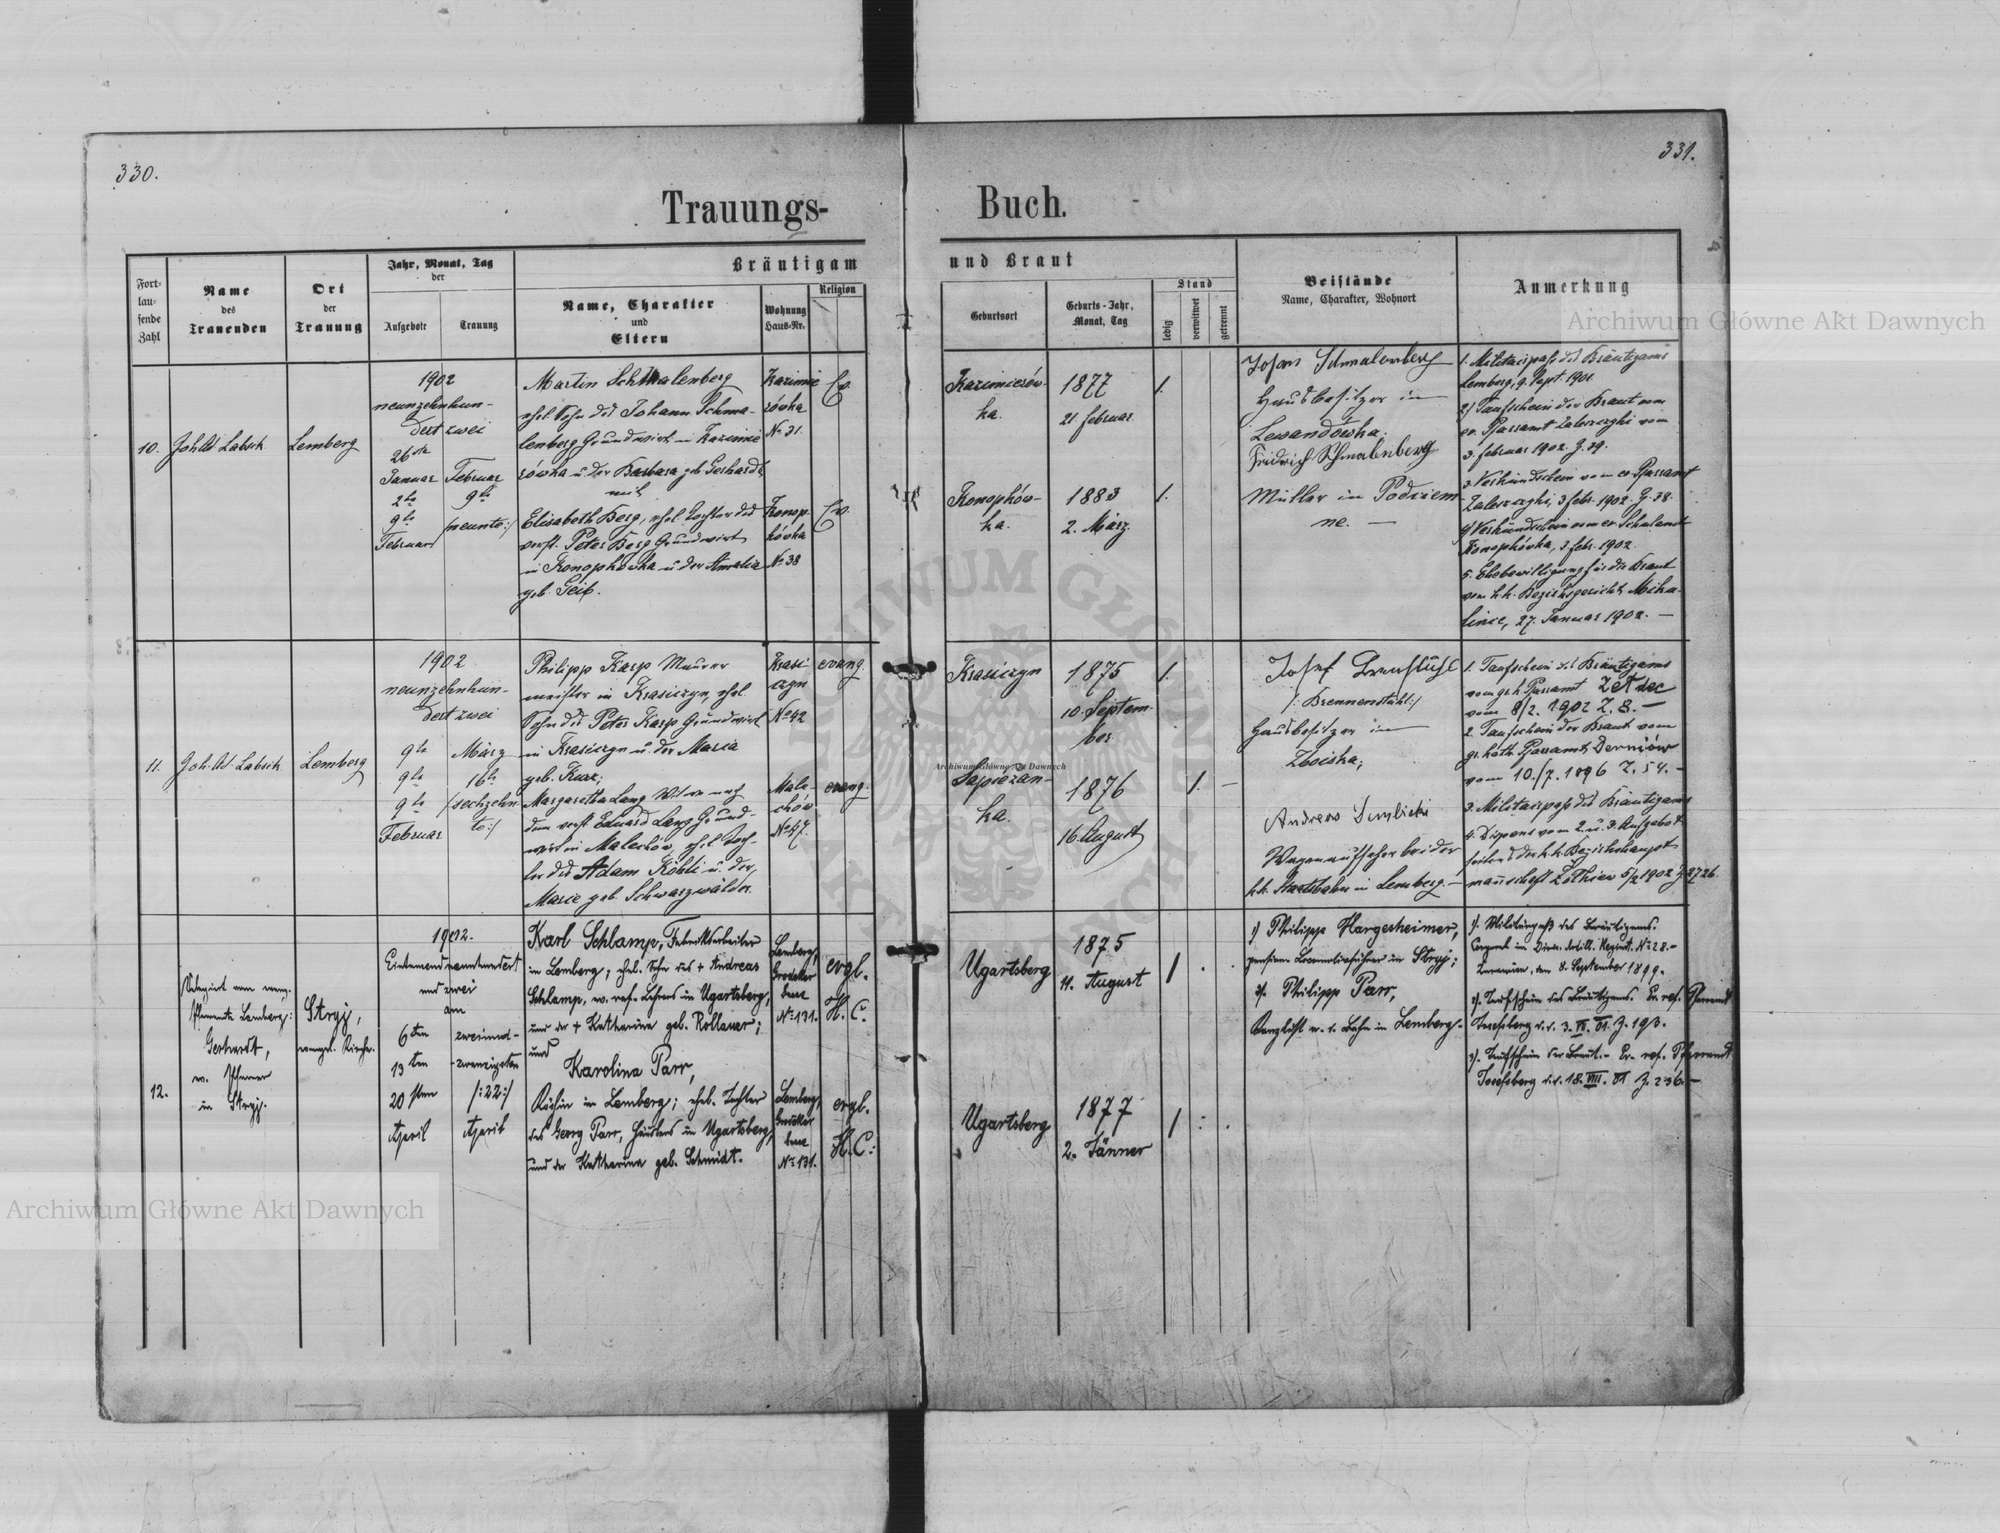 330.
331.
Trauungs-
Buch.
Fort-
lau-
fende
Zahl
Name
des
Trauenden
Ort
der
Trauung
Jahr, Monat, Tag
der
Aufgebote
Trauung
Bräutigam
Name, Charakter
und
Eltern
Wohnung
Haus-Nr.
Religion
und Braut
Geburtsort
Geburts-Jahr,
Monat, Tag
Stand
ledig
verwitwet
getrennt
Beistände
Name, Charakter, Wohnort
Anmerkung
Archiwum Główne Akt Dawnych
10.
Labsik
Lemberg
1902
neunzehnhun-
dert zwei
26te
Januar
2te
9te
Februar
Februar
9te
/neunte:/
Martin Schmalenberg
ehel. Sohn des Johann Schma-
lenberg Grundwirt in Kazimie
rówka u. der Barbara geb. Gerhardt
mit
Elisabeth Berg, ehel. Tochter des
verst. Peter Berg Grundwirt
in Konopkówka u. der Amalia
geb. Geib.
Kazimie
rówka
No 31.
Ev.
Konop-
kówka
No 38
Ev.
Kazimierów-
ka.
1877
21 Februar
1.
Konopków-
ka.
1883
2. März
1.
Johann Schmalenberg
Hausbesitzer in
Lewandówka.
Fridrich Schmalenberg
Müller in Podciem-
ne. —
1. Militairpaß des Bräutigams
Lemberg, 9. Sept. 1901.
2) Taufschein der Braut vom
ev. Pfarramt Zaleszczyki vom
3. Februar 1902. Z. 39.
3. Verkündschein vom ev. Pfarramt
Zaleszczyki, 3 Febr. 1902. Z. 38.
4) Verkündschein vom ev. Schulamt
Konopkówka, 3 Febr. 1902.
5. Ehebewilligung für die Braut
vom k. k. Bezirksgericht Miku-
lince, 27. Januar 1902. —
11.
Labsik
Lemberg
1902
neunzehnhun-
dert zwei
9te
9te
9te
Februar
März
16te
/sechzehn-
te:/
Philipp Karp Maurer
meister in Krasiczyn, ehel.
Sohn des Peter Karp Grundwirt
in Krasiczyn u. der Maria
geb. Kurz;
Margaretha Lang Witwe nach
dem verst. Eduard Lang Grund-
wirt in Malechów, ehel. Toch-
ter des Adam Köbli u. der
Marie geb. Schwarzwälder.
Krasi
czyn
No 42
evang.
Male-
chów
No 47.
evang.
Krasiczyn
1875
10. Septem-
ber
1.
Sapiezan-
ka.
1876
16. August
1. —
Josef
/: Brennenstuhl:/
Hausbesitzer in
Zboiska;
Andreas
Wagenaufseher bei der
k. k. Staatsbahn in Lemberg. —
1. Taufschein des Bräutigams
vom gr. k. Pfarramt
vom 8/2. 1902 Z. 8. —
2. Taufschein der Braut vom
gr. kath. Pfarramt Derniów
vom 10./7. 1896 Z. 54. —
3. Militairpass des Bräutigams
4. Dispens vom 2. u. 3. Aufgebot
seitens der k. k. Bezirkshaupt
mannschaft Zólkiew 5/2 1902 Z. 3726.
12.
Delegirt vom evang.
Pfarramte Lemberg:
Gerhardt,
ev. Pfarrer
in Stryj.
Stryj,
evangel. Kirche.
1902.
Eintausendneunhundert
und zwei
am
6ten
13ten
20sten
April
zweiund-
zwanzigsten
/:22:/
April
Karl Schlamp, Fabriksarbeiter
in Lemberg; ehel. Sohn des + Andreas
Schlamp, ev. ref. Lehrers in Ugartsberg,
und der + Katharina geb. Rollauer;
und
Karolina Parr,
Köchin in Lemberg; ehel. Tochter
des Georg Parr, Häuslers in Ugartsberg,
und der Katharina geb. Schmidt.
Lemberg,
Grodeker
No 131.
evgl.
H. C.
Lemberg,
Grodeker
No 131.
evgl.
H. C.
Ugartsberg
1875
11. August
1
Ugartsberg
1877
2. Jänner
1
1) Philipp Hargesheimer,
pension. Locomotivführer in Stryj;
2). Philipp Parr,
Kanzlist w. d. Bahn in Lemberg.
1). Militärpaß des Bräutigams.
Corporal im Divis. Artill. Regimt. No 28. —
den 8. September 1899.
2). Taufschein des Bräutigams. Ev. ref. Pfarramt
Josefsberg d. d. 3. VI. 01. Z. 193.
3). Taufschein der Braut. — Ev. ref. Pfarramt
Josefsberg d. d. 18. VIII. 01 Z. 236. —
Archiwum Główne Akt Dawnych
Archiwum Główne Akt Dawnych